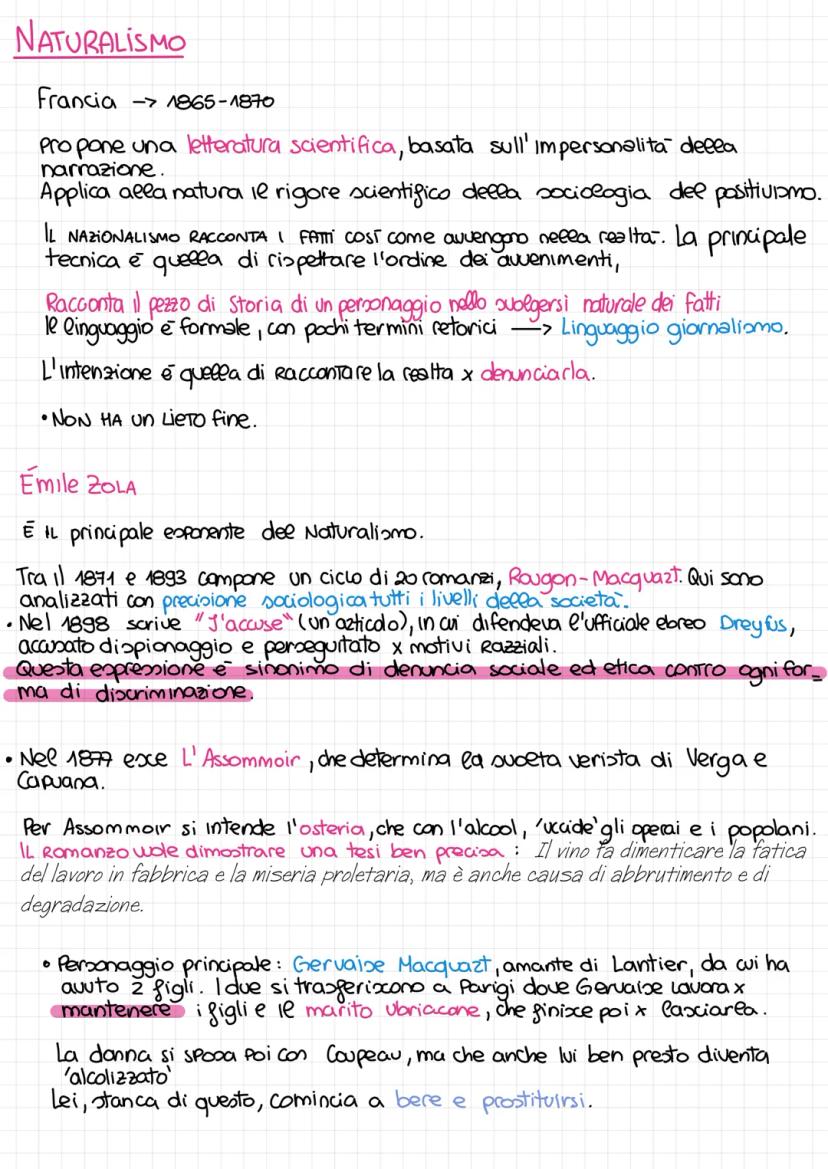 NATURALISMO
Francia -> 1865-1870
Propone una letteratura scientifica, basata sull'impersonalità della
narrazione.
Applica alla natura il rigore scientifico della sociologia del positivismo.
IL NAZIONALISMO RACCONTA I FATTI così come avvengono nella realtà. La principale
tecnica è quella di rispettare l'ordine dei avvenimenti,
Racconta il pezzo di Storia di un personaggio nello svolgersi naturale dei fatti
Il linguaggio è formale, con pochi termini retorici —> Linguaggio giornalismo.
L'intenzione è quella di RACCONTARE la realtà x denunciarla.
• NON HA un LIETO fine.
Émile ZOLA
È IL principale esponente del Naturalismo.
Tra il 1871 e 1893 compone un ciclo di 20 romanzi, Rougon-Macquart. Qui sono
analizzati con precisione sociologica tutti i livelli della società.
• Nel 1898 scrive "J'accuse" (un'articolo), in cui difendeva l'ufficiale ebreo Dreyfus,
accusato di spionaggio e perseguitato x motivi Razziali.
Questa espressione è sinonimo di denuncia sociale ed etica contro ogni for_
ma di discriminazione.
• Nel 1877 esce L'Assommoir, che determina la svolta verista di Verga e
Capuana.
Per Assommoir si intende l'osteria, che con l'alcool, 'uccide' gli operai e i popolani.
IL Romanzo vuole dimostrare una tesi ben precisa : Il vino fa dimenticare la fatica
del lavoro in fabbrica e la miseria proletaria, ma è anche causa di abbrutimento e di
degradazione.
• Personaggio principale: Gervaise Macquart, amante di Lantier, da cui ha
avuto 2 figli. I due si trasferiscono a Parigi dove Gervaise lavora x
mantenere i figli e il marito ubriacone, che finisce poi x lasciarla.
La donna si sposa poi con Coupeau, ma che anche lui ben presto diventa
'alcolizzato'
Lei, stanca di questo, comincia a bere e prostituirsi.